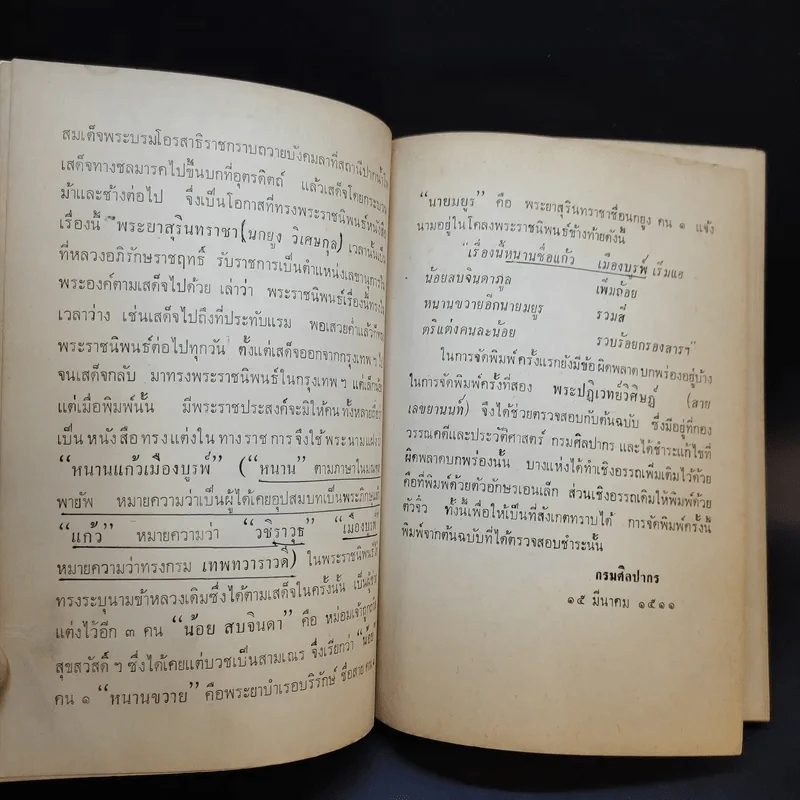 สมเด็จพระบรมโอรสาธิราชกราบถวายบังคมลาที่สถานีปากน้ำโพ
เสด็จทางชลมารคไปขึ้นบกที่อุตรดิตถ์ แล้วเสด็จโดยกระบวน
ม้าและช้างต่อไป จึ่งเป็นโอกาสที่ทรงพระราชนิพนธ์หนังสือ
เรื่องนี้ พระยาสุรินทราชา (นกยูง วิเศษกุล) เวลานั้นเป็น
ที่หลวงอภิรักษราชฤทธิ์ รับราชการเป็นตำแหน่งเลขานุการใน
พระองค์ตามเสด็จไปด้วย เล่าว่า พระราชนิพนธ์เรื่องนี้ทรงใน
เวลาว่าง เช่นเสด็จไปถึงที่ประทับแรม พอเสวยค่ำแล้วก็ทรง
พระราชนิพนธ์ต่อไปทุกวัน ตั้งแต่เสด็จออกจากกรุงเทพฯ ไป
จนเสด็จกลับ มาทรงพระราชนิพนธ์ในกรุงเทพฯ แต่เล็กน้อย
แต่เมื่อพิมพ์นั้น มีพระราชประสงค์จะมิให้คนทั้งหลายถือว่า
เป็นหนังสือทรงแต่งในทางราชการ จึงใช้พระนามแฝงว่า
“หนานแก้วเมืองบูรพ์” (“หนาน” ตามภาษาในมณฑล
พายัพ หมายความว่าเป็นผู้ได้เคยอุปสมบทเป็นพระภิกษุแล้ว
“แก้ว” หมายความว่า “วชิราวุธ” “เมืองบูรพ์”
หมายความว่าทรงกรม เทพทวาราวดี) ในพระราชนิพนธ์
ทรงระบุนามข้าหลวงเดิมซึ่งได้ตามเสด็จในครั้งนั้น เป็นผู้ช่วย
แต่งไว้อีก ๓ คน “น้อย สบจินดา” คือ หม่อมเจ้าถูกถวิล
สุขสวัสดิ์ ฯ ซึ่งได้เคยแต่บวชเป็นสามเณร จึงเรียกว่า “น้อย”
คน ๑ “หนานขวาย” คือพระยาบำเรอบริรักษ์ ชื่อสาย คน ๑
“นายมยูร” คือ พระยาสุรินทราชาชื่อนกยูง คน ๑ แจ้ง
นามอยู่ในโคลงพระราชนิพนธ์ข้างท้ายดังนี้
“เรื่องนี้หนานชื่อแก้ว เมืองบูรพ์ เริ่มแฮ
น้อยสบจินดาภูล เพิ่มถ้อย
หนานขวายอีกนายมยูร รวมสี่
ตริแต่งคนละน้อย รวบร้อยกรองสารฯ”
ในการจัดพิมพ์ครั้งแรกยังมีข้อผิดพลาดบกพร่องอยู่บ้าง
ในการจัดพิมพ์ครั้งที่สอง พระปฏิเวทย์วิศิษฏ์ (สาย
เลขยานนท์) จึงได้ช่วยตรวจสอบกับต้นฉบับ ซึ่งมีอยู่ที่กอง
วรรณคดีและประวัติศาสตร์ กรมศิลปากร และได้ชำระแก้ไขที่
ผิดพลาดบกพร่องนั้น บางแห่งได้ทำเชิงอรรถเพิ่มเติมไว้ด้วย
คือที่พิมพ์ด้วยตัวอักษรเอนเล็ก ส่วนเชิงอรรถเดิมให้พิมพ์ด้วย
ตัวจิ๋ว ทั้งนี้เพื่อให้เป็นที่สังเกตทราบได้ การจัดพิมพ์ครั้งนี้
พิมพ์จากต้นฉบับที่ได้ตรวจสอบชำระนั้น
กรมศิลปากร
๑๕ มีนาคม ๒๕๑๑